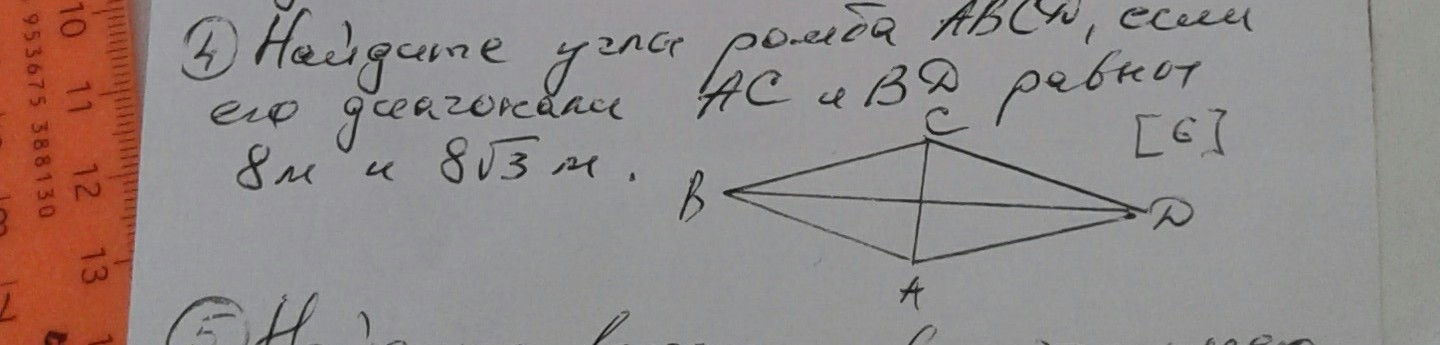 ④ Найдите углы ромба ABCD, если
его диагонали AC и BD равны
8м и 8√3 м. [6]
C
B
D
A
⑤
10
11
12
13
953675388130